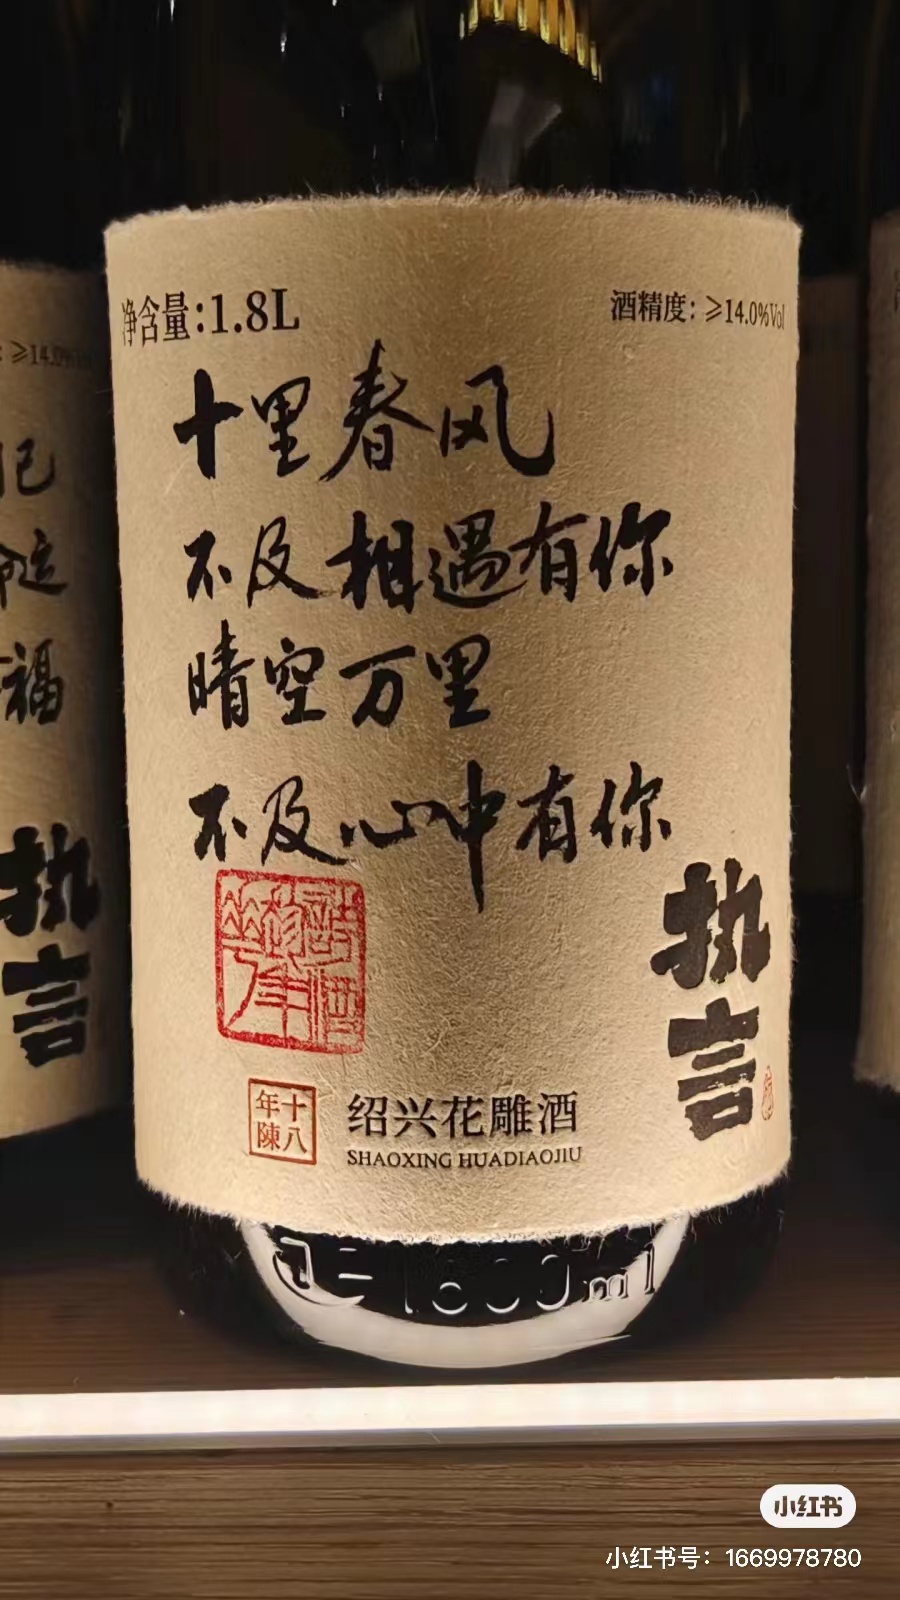 净含量:1.8L
酒精度:≥14.0%Vol
十里春风
不及相遇有你
晴空万里
不及心中有你
执言
十八年陳
绍兴花雕酒
SHAOXING HUADIAOJIU
≥14.0%
福
执言
小红书
小红书号：1669978780